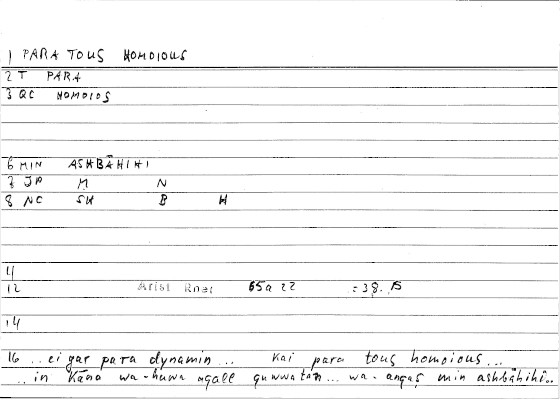 1 PARA TOUS HOMOIOUS
2 T PARA
3 QC HOMOIOS
6 MIN ASHBĀHIHI
7 JP M N
8 NC SH B H
4
12 Arist Rhet 65a 22 = 38. 15
14
16 .. ei gar para dynamin ... kai para tous homoious ...
.. in kāna wa-huwa aqall quwwatan ... wa-anqaṣ min ashbāhihi ..